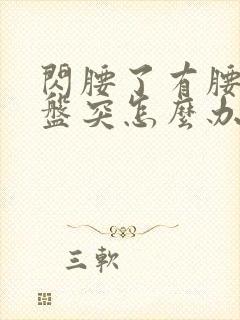 閃腰了有腰
盤突怎麼办
三軟